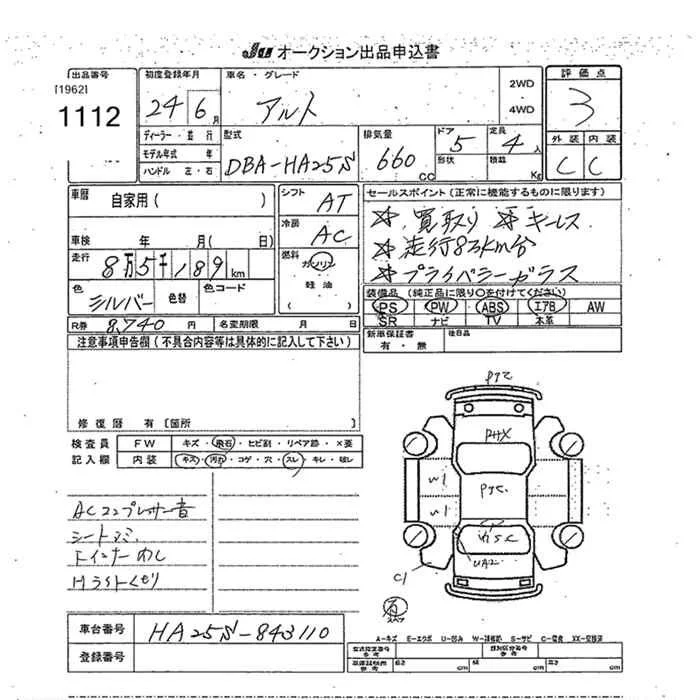 JU オークション出品申込書
出品番号
[1962]
1112
初度登録年月
24 6月
車名・グレード
アルト
2WD
4WD
評価点
3
外装 内装
C C
ディーラー・並行
モデル年式 年
ハンドル 左・右
型式
DBA-HA25S
排気量
660 CC
ドア
5
形状
定員
4人
積載
Kg
車歴
自家用( )
車検 年 月( 日)
走行
8万5千189km
色
シルバー
色替
色コード
シフト
AT
冷房
AC
燃料
ガソリン
軽油
( )
セールスポイント(正常に機能するものに限ります)
☆買取り ☆キーレス
☆走行8万km台
☆プライバシーガラス
装備品(純正品に限り○を付けてください)
PS PW ABS エアB AW
SR ナビ TV 本革
新車保証書
有・無
後日品
R券 8,740円
名変期限 月 日
注意事項申告欄(不具合内容等は具体的に記入して下さい)
修復歴 有[箇所 ]
検査員
記入欄
FW キズ・飛石・ヒビ割・リペア跡・×要
内装 キズ・汚れ・コゲ・穴・スレ・キレ・破レ
ACコンプレッサー音
H ライトくもり
W1
W1
C1
車台番号
HA25S-843110
登録番号
A-キズ E-エクボ U-凹み W-補修跡 S-サビ C-腐食 XX-交換済
型式指定番号
類別区分番号
長さ cm 幅 cm 高さ cm